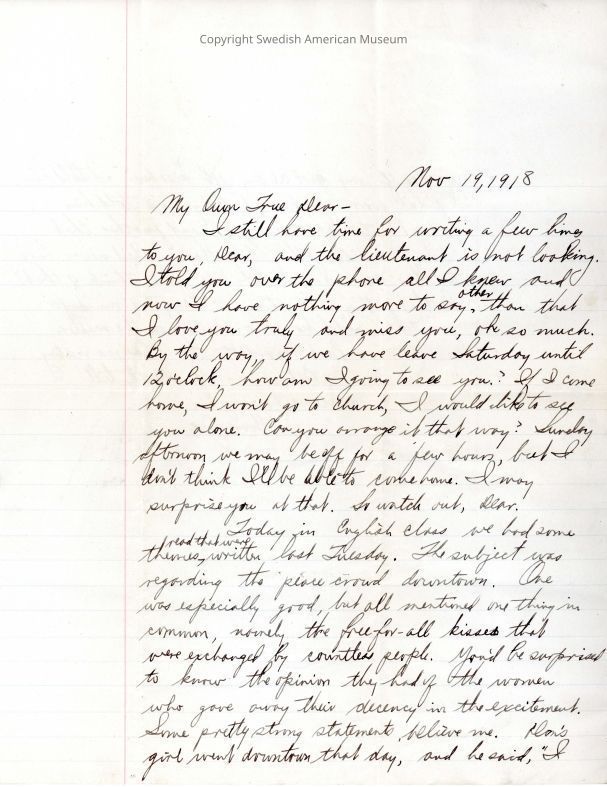 Copyright Swedish American Museum
Nov 19, 1918
My Own True Dear-
I still have time for writing a few lines
to you, Dear, and the lieutenant is not looking.
I told you over the phone all I knew and
now I have nothing more to say, other than that
I love you truly and miss you, oh so much.
By the way, if we have leave Saturday until
12 o'clock, how am I going to see you? If I come
home, I won't go to church, I would like to see
you alone. Can you arrange it that way? Sunday
afternoon we may be off for a few hours, but I
don't think I'll be able to come home. I may
surprise you at that. So watch out, Dear.
Today in English class we had some
themes, read that were written last Tuesday. The subject was
regarding the peace crowd downtown. One
was especially good, but all mentioned one thing in
common, namely the free-for-all kisses that
were exchanged by countless people. You'd be surprised
to know the opinion they had of the women
who gave away their decency in the excitement.
Some pretty strong statements, believe me. Don's
girl went downtown that day, and he said, "I